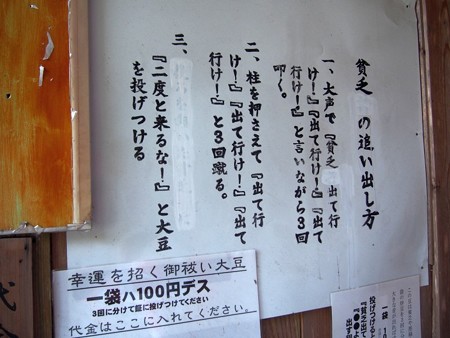 貧乏 の追い出し方
一、大声で『貧乏 出て行
け！』『出て行け！』『出て
行け！』と言いながら3回
叩く。
二、柱を押さえて『出て行
け！』『出て行け！』『出て
行け！』と3回蹴る。
三、
『二度と来るな！』と大豆
を投げつける
幸運を招く御祓い大豆
一袋ハ100円デス
3回に分けて鉦に投げつけてください
代金はここに入れてください。
代金
一袋 10
投げつける
『貧乏出て